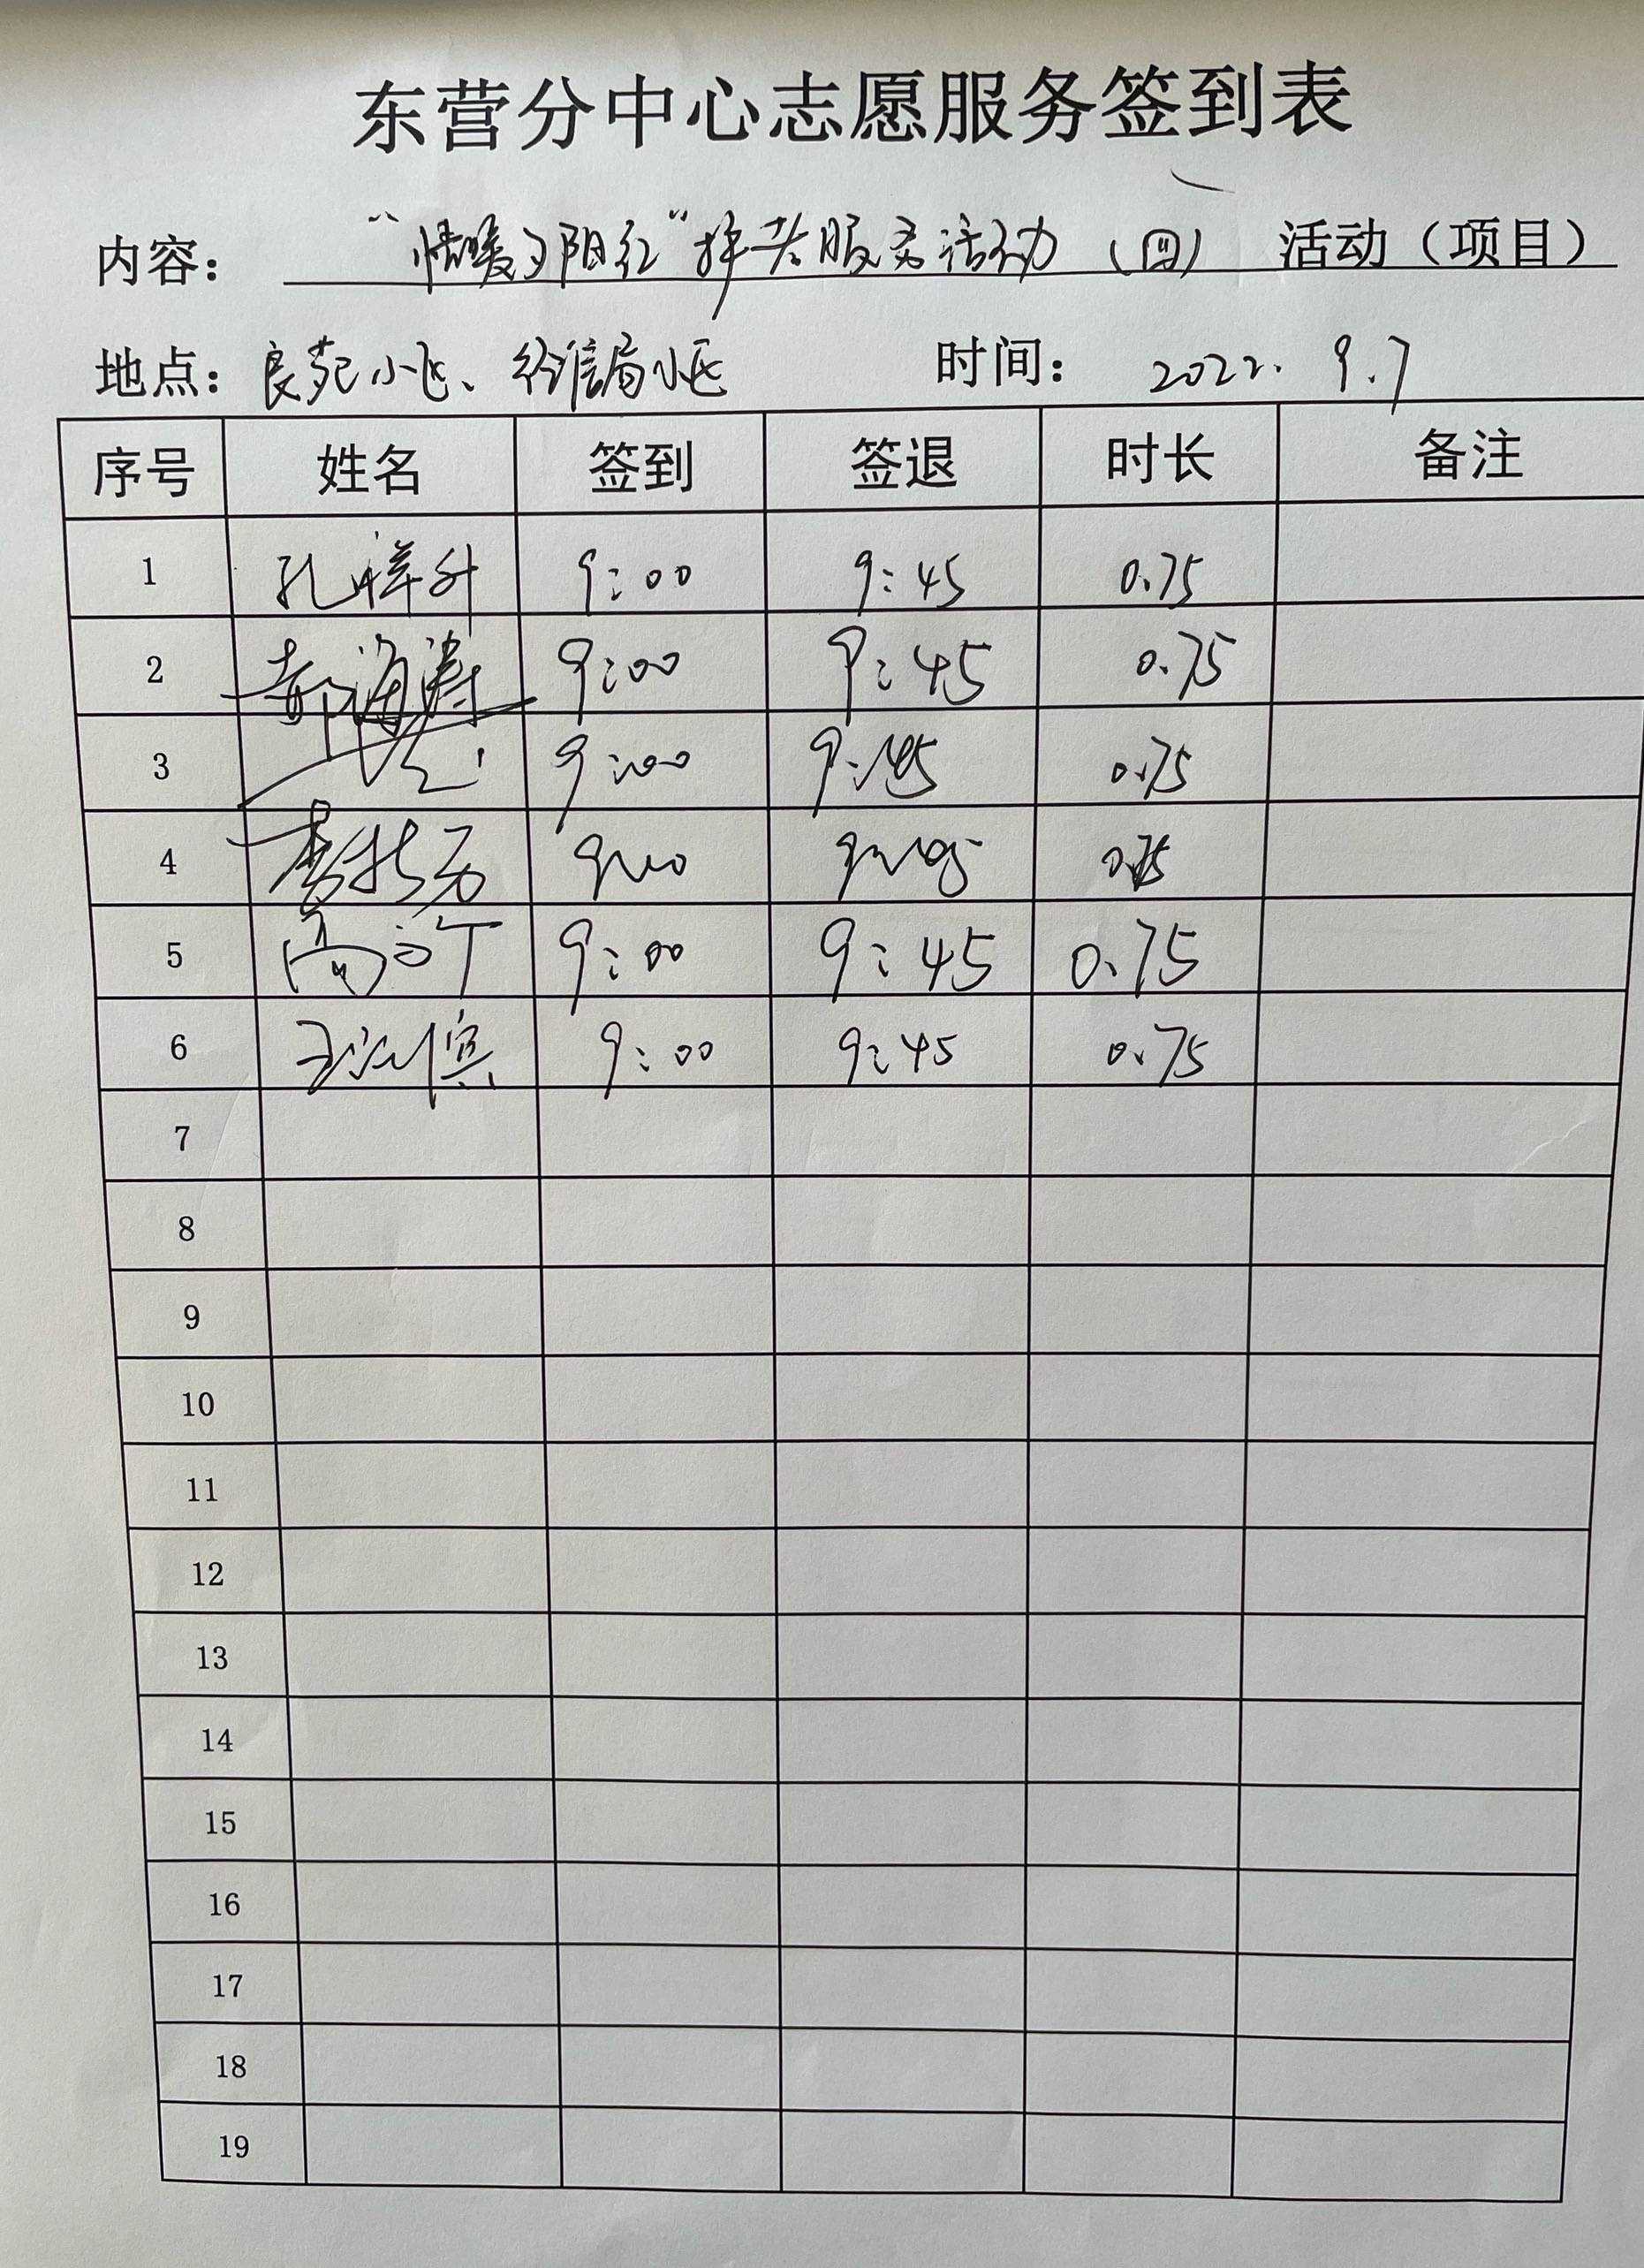 东营分中心志愿服务签到表
内容： “情暖夕阳红”敬老服务活动（四） 活动（项目）
地点：良苑小区、经信局小区 时间： 2022. 9.7
序号 姓名 签到 签退 时长 备注
1 孔祥升 9:00 9:45 0.75
2 郝海涛 9:00 9:45 0.75
3 9:00 9:45 0.75
4 9:00 9:45 0.75
5 高 9:00 9:45 0.75
6 王 滨 9:00 9:45 0.75
7
8
9
10
11
12
13
14
15
16
17
18
19